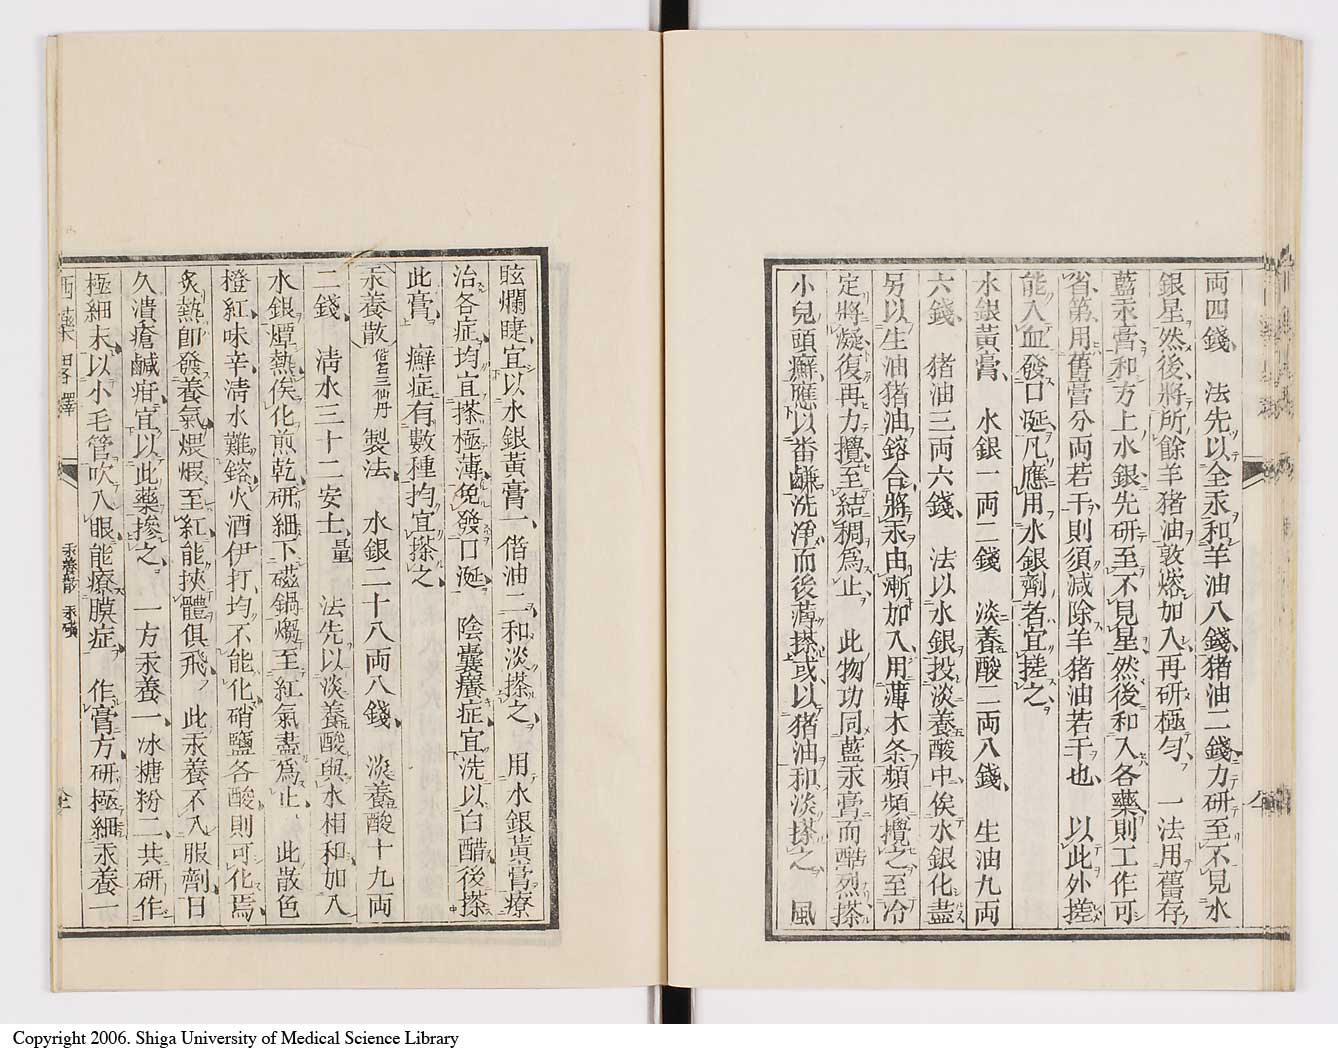 両四錢 法先以全汞和羊油八錢猪油二錢力研至不見水
銀星然後將所餘羊猪油敦熔加入再研極匀 一法用舊存
藍汞膏和方上水銀先研至不見星然後和入各藥則工作可
省第用舊膏分両若干則須減除羊猪油若干也 以此外搓
能入血發口涎凡應用水銀劑者宜搓之
水銀黃膏 水銀一両二錢 淡養酸二両八錢 生油九両
六錢 猪油三両六錢 法以水銀投淡養酸中俟水銀化盡
另以生油猪油鎔合將汞由漸加入用薄木条頻頻攪之至冷
定將凝復再力攪至結稠為止 此物功同藍汞膏而酷烈搽
小兒頭癬應以番鹻洗淨而後薄搽或以猪油和淡搽之 風
眩爛睫宜以水銀黃膏一偕油二和淡搽之 用水銀黃膏療
治各症均宜搽極薄免發口涎 陰囊癢症宜洗以白醋後搽
此膏 癬症有數種均宜搽之
汞養散 偕名三仙丹 製法 水銀二十八両八錢 淡養酸十九両
二錢 淸水三十二安士量 法先以淡養酸與水相和加入
水銀燂熱俟化煎乾研細下磁鍋燬至紅氣盡為止 此散色
橙紅味辛淸水難鎔火酒伊打均不能化硝鹽各酸則可化焉
炙熱卽發養氣煨煆至紅能挾體俱飛 此汞養不入服劑日
久潰瘡鹹疳宜以此藥摻之 一方汞養一冰糖粉二共研作
極細末以小毛管吹入眼能療膜症 作膏方研極細汞養一
西藥畧釋
汞養散 汞礦
Copyright 2006. Shiga University of Medical Science Library